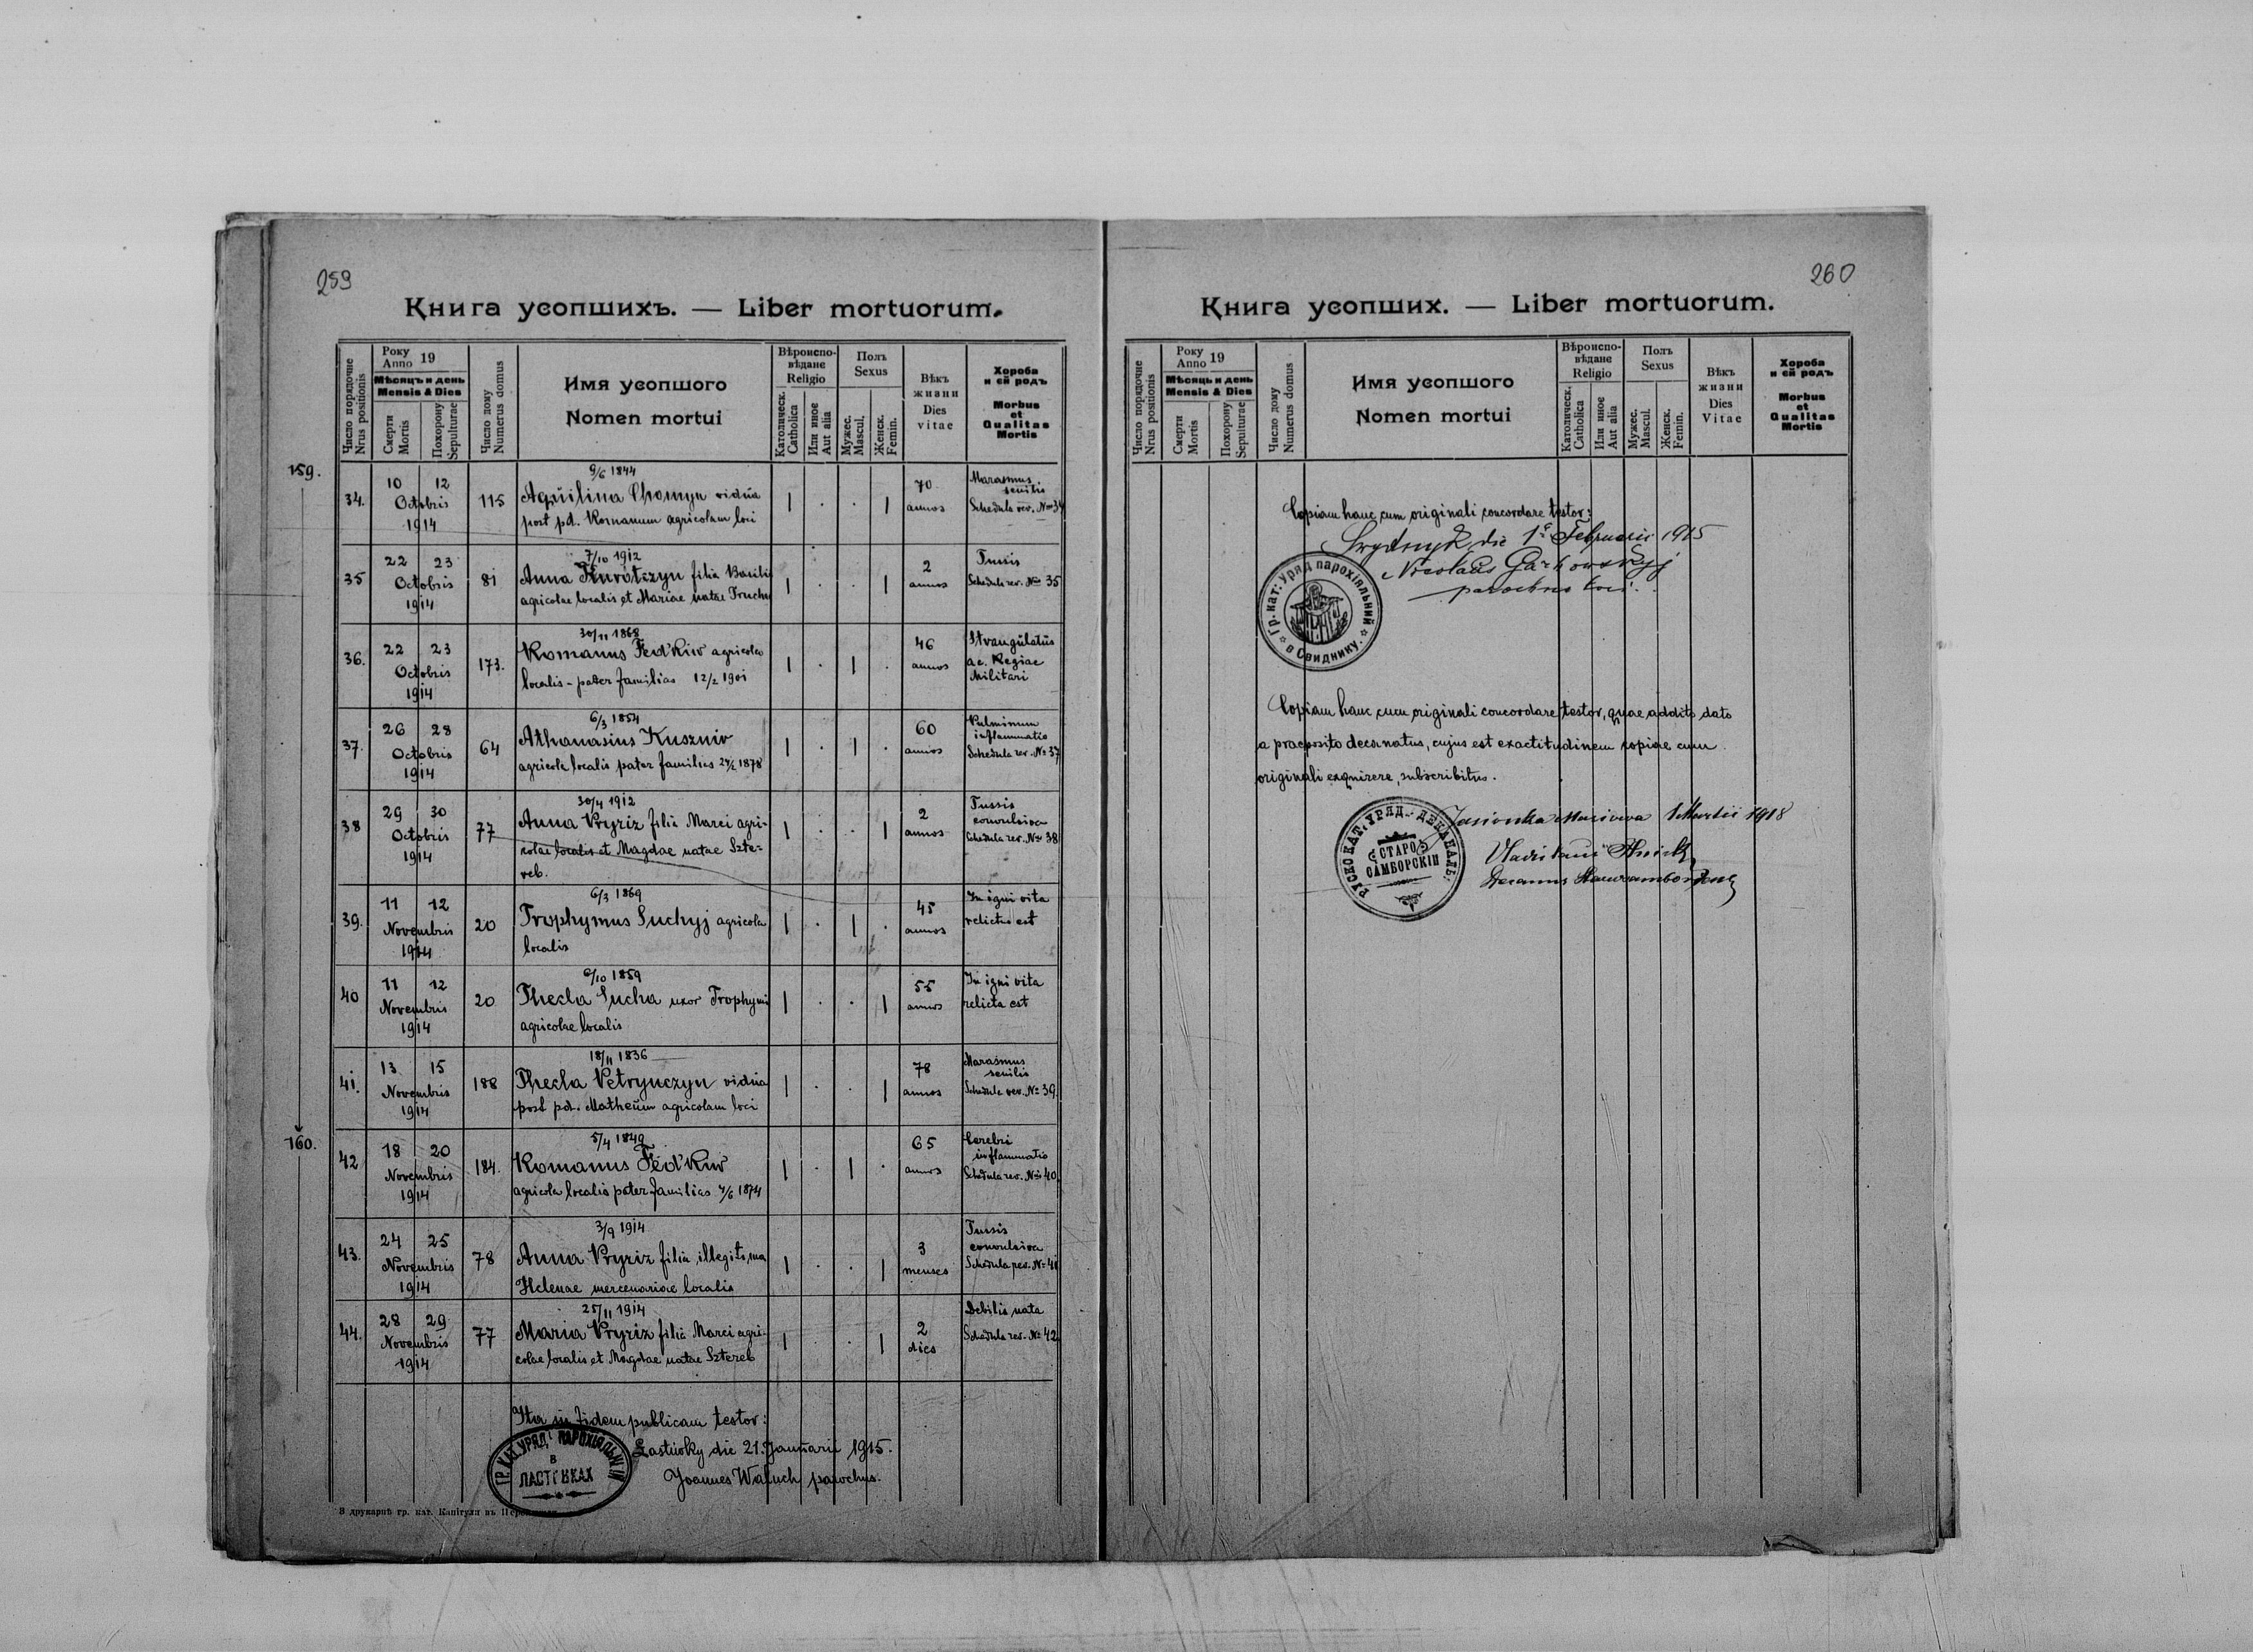 259
Книга усопшихъ. — Liber mortuorum.
Число порядочне
Nrus positionis
Року
Anno 19
Мѣсяцъ и день
Mensis & Dies
Смерти
Mortis
Похорону
Sepulturae
Число дому
Numerus domus
Имя усопшого
Nomen mortui
Вѣроиспо-
вѣдане
Religio
Католическ.
Catholica
Или иное
Aut alia
Полъ
Sexus
Мужес.
Mascul.
Женск.
Femin.
Вѣкъ
жизни
Dies
vitae
Хороба
и єй родъ
Morbus
et
Qualitas
Mortis
159.
34. 10 12 Octobris 1914 115
9/6 1844
Aquilina Chomyn vidua
post pd. Romanum agricolam loci
70 annos
Marasmus senilis
Schedula rev. Nro 34
35 22 23 Octobris 1914 81
7/10 1912
Anna filia Basilii
agricolae localis et Mariae natae
2 annos
Tussis
Schedula rev. Nro 35
36. 22 23 Octobris 1914 173.
30/11 1868
Romanus Fed'kiw agricola
localis - pater familias 12/2 1901
46 annos
Strangulatus
a c. Regiae
Militari
37. 26 28 Octobris 1914 64
6/3 1854
Athanasius Kuszniv
agricola localis pater familias 24/2 1878
60 annos
Pulmonum
inflammatio
Schedula rev. No 37
38 29 30 Octobris 1914 77
30/4 1912
Anna Pryriz filia Marci agri-
colae localis et Magdae natae Szte-
reb.
2 annos
Tussis
convulsiva
Schedula rev. Nro 38
39. 11 12 Novembris 1914 20
6/3 1869
Trophymus Suchyj agricola
localis
45 annos
In igni vita
relictus est
40 11 12 Novembris 1914 20
/10 1859
Thecla Sucha uxor Trophymi
agricolae localis
55 annos
In igni vita
relicta est
41. 13 15 Novembris 1914 188
18/11 1836
Thecla Petrynczyn vidua
post pd. Matheum agricolam loci
78 annos
Marasmus
senilis
Schedula rev. No 39.
160.
42 18 20 Novembris 1914 184.
5/4 1849
Romanus Fed'kiw
agricola localis pater familias /6 1874
65 annos
Cerebri
inflammatio
Schedula rev. Nro 40
43. 24 25 Novembris 1914 78
3/9 1914
Anna Pryriz filia illegitima
Helenae mercenariae localis
3 menses
Tussis
convulsiva
Schedula rev. No 41
44. 28 29 Novembris 1914 77
25/11 1914
Maria Pryriz filia Marci agri-
colae localis et Magdae natae Sztereb
2 dies
Debilis nata
Schedula rev. No 42
Ita in fidem publicam testor:
Lastiwky die 21. Januarii 1915.
Joannes Waluch parochus.
ГР. КАТ. УРЯД ПАРОХІЯЛЬНИЙ
В
ЛАСТІВКАХ
З друкарнѣ гр. кат. Капітули въ
260
Книга усопших. — Liber mortuorum.
Число порядочне
Nrus positionis
Року
Anno 19
Мѣсяцъ и день
Mensis & Dies
Смерти
Mortis
Похорону
Sepulturae
Число дому
Numerus domus
Имя усопшого
Nomen mortui
Вѣроиспо-
вѣдане
Religio
Католическ.
Catholica
Или иное
Aut alia
Полъ
Sexus
Мужес.
Mascul.
Женск.
Femin.
Вѣкъ
жизни
Dies
Vitae
Хороба
и єй родъ
Morbus
et
Qualitas
Mortis
Copiam hanc cum originali concordare testor:
Swydnyk die 1 Februarii 1915
Nicolaus
parochus loci.
Гр. кат. Уряд парохіяльний
в Свиднику.
Copiam hanc cum originali concordare testor, quae addito dato
a praeposito decanatus, cujus est exactitudinem copiae cum
originali exquirere, subscribitus.
Jasionka Masiowa 1 Martii 1918
РУСКО КАТ. УРЯД ДЕКАНАЛЬ.
СТАРО
САМБОРСКІЙ
Decanus